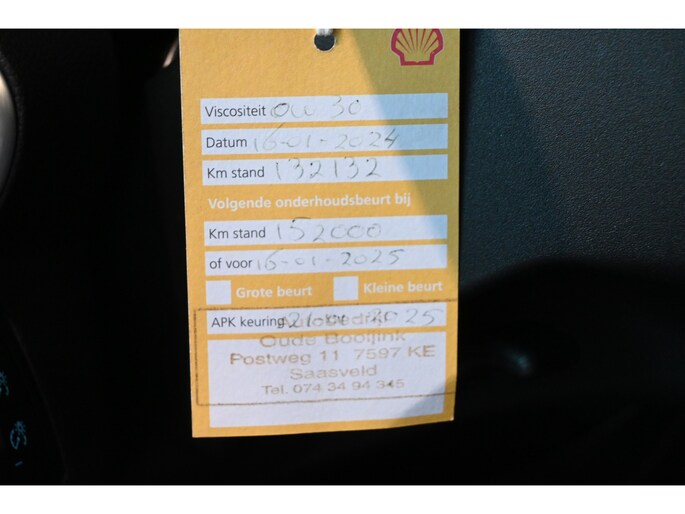 Viscositeit 0W 30
Datum 16-01-2024
Km stand 132132
Volgende onderhoudsbeurt bij
Km stand 152000
of voor 16-01-2025
Grote beurt Kleine beurt
APK keuring 2025
Autobedrijf
Oude Booijink
Postweg 11 7597 KE
Saasveld
Tel. 074 34 94 345